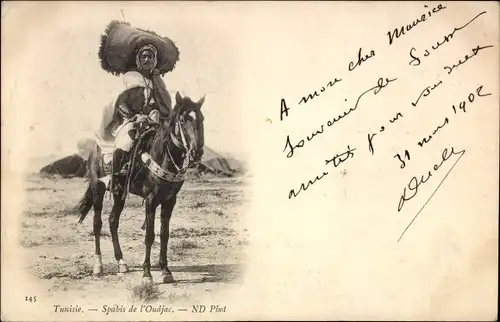 A mon cher Maurice
Souvenir de Sousse
amitiés pour vous deux
31 mars 1902
145
Tunisie. — Spahis de l'Oudjac. — ND Phot